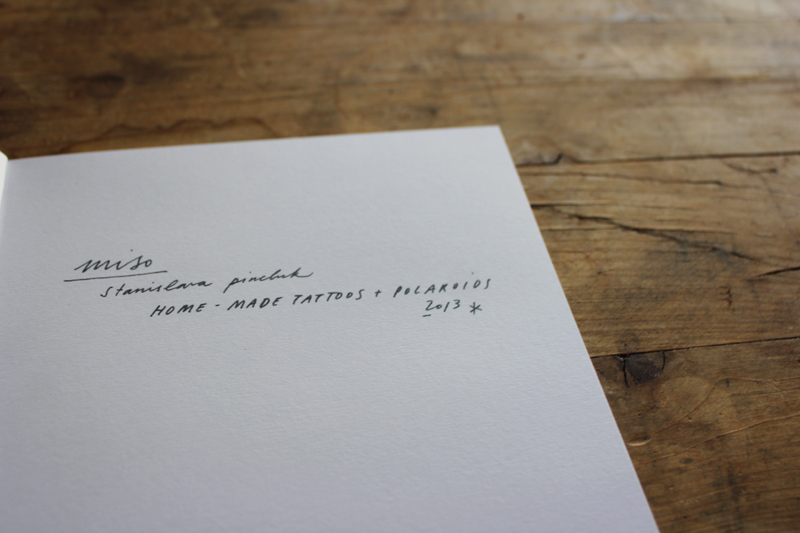 miso
stanislava pinchuk
HOME-MADE TATTOOS + POLAROIDS
2013 *